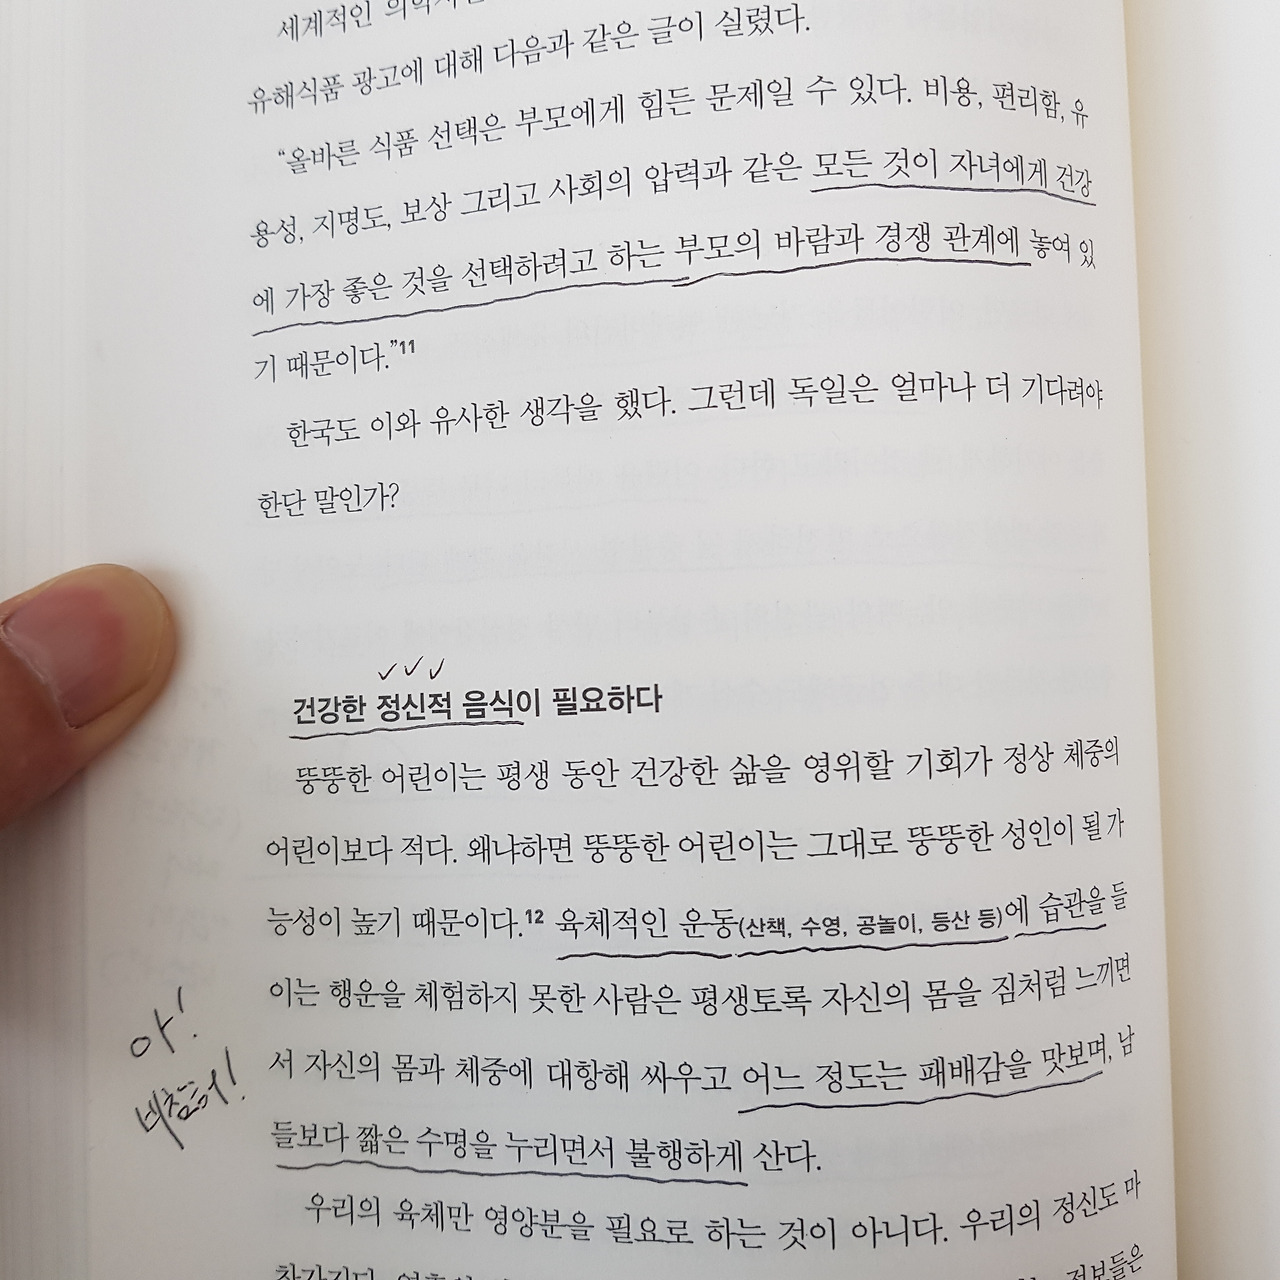 세계적인
유해식품 광고에 대해 다음과 같은 글이 실렸다.
“올바른 식품 선택은 부모에게 힘든 문제일 수 있다. 비용, 편리함, 유
용성, 지명도, 보상 그리고 사회의 압력과 같은 모든 것이 자녀에게 건강
에 가장 좋은 것을 선택하려고 하는 부모의 바람과 경쟁 관계에 놓여 있
기 때문이다.”11
한국도 이와 유사한 생각을 했다. 그런데 독일은 얼마나 더 기다려야
한단 말인가?
건강한 정신적 음식이 필요하다
뚱뚱한 어린이는 평생 동안 건강한 삶을 영위할 기회가 정상 체중의
어린이보다 적다. 왜냐하면 뚱뚱한 어린이는 그대로 뚱뚱한 성인이 될 가
능성이 높기 때문이다.12 육체적인 운동(산책, 수영, 공놀이, 등산 등)에 습관을 들
이는 행운을 체험하지 못한 사람은 평생토록 자신의 몸을 짐처럼 느끼면
아!
서 자신의 몸과 체중에 대항해 싸우고 어느 정도는 패배감을 맛보며, 남
들보다 짧은 수명을 누리면서 불행하게 산다.
우리의 육체만 영양분을 필요로 하는 것이 아니다. 우리의 정신도 마
찬가지다. 정보들은